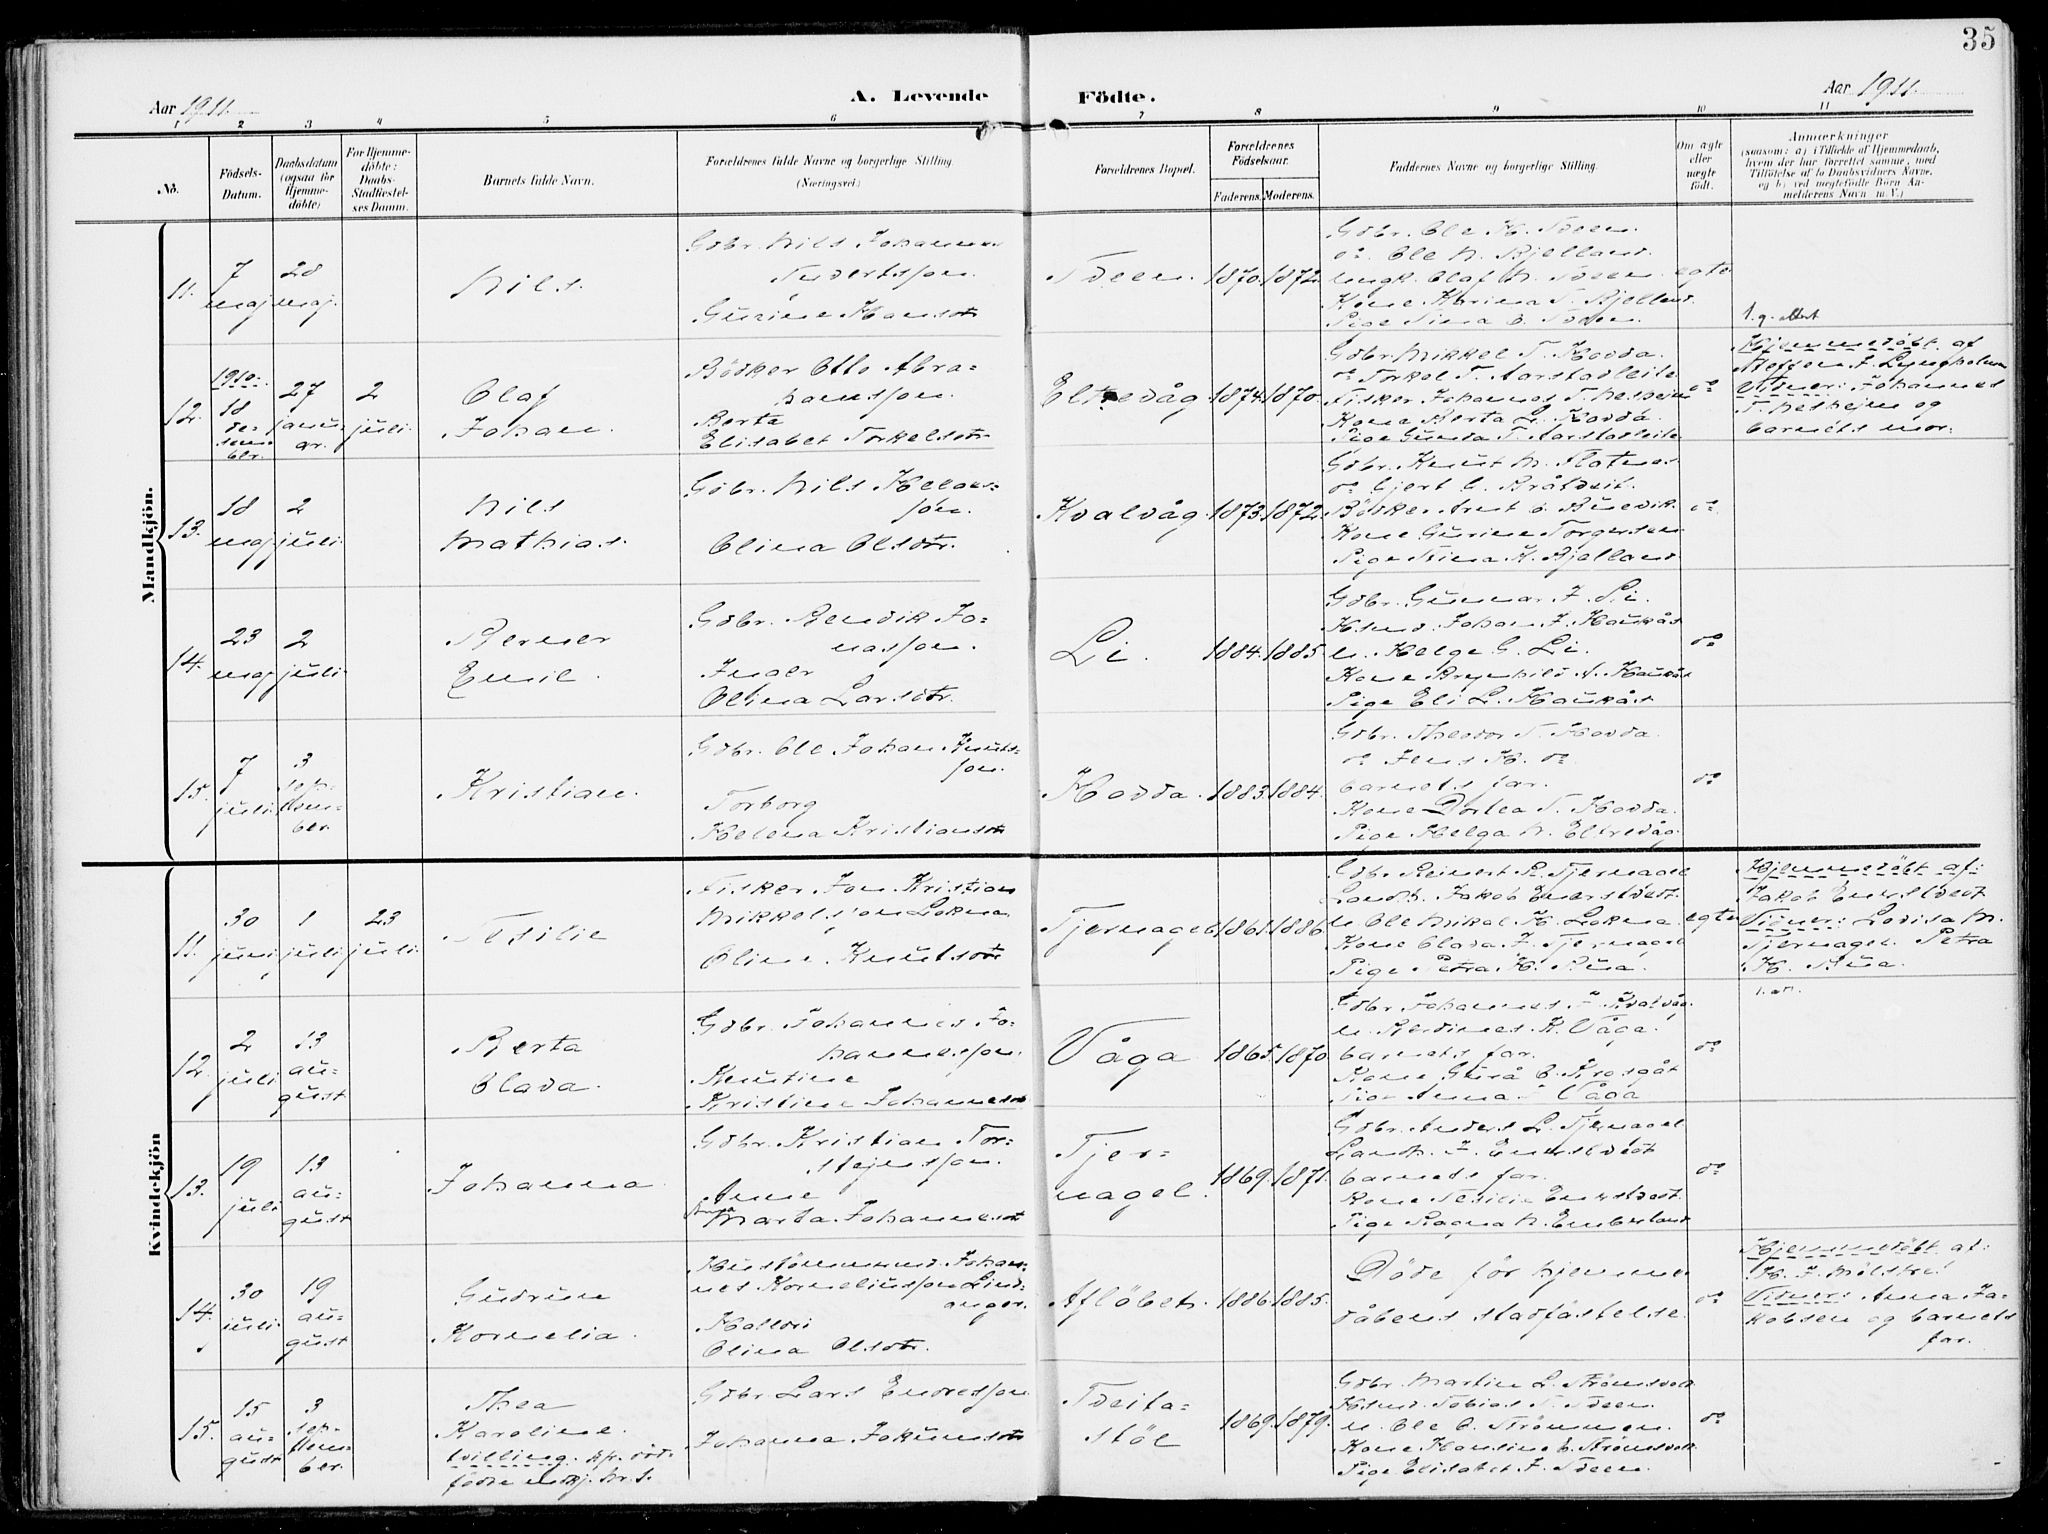 35
Aar 1911.
A. Levende
Födte.
Aar 1911.
1 2 3 4 5 6 7 8 9 10 11
No.
Födsels-
Datum.
Daabsdatum
(ogsaa for
Hjemme-
döbte)
For Hjemme-
döbte:
Daabs-
Stadfæstel-
ses Datum.
Barnets fulde Navn.
Forældrenes fulde Navne og borgerlige Stilling.
(Næringsvei.)
Forældrenes Bopæl.
Forældrenes
Födselsaar.
Faderens.
Moderens.
Faddernes Navne og borgerlige Stilling.
Om ægte
eller
uægte
födt.
Anmærkninger
(saasom: a) i Tilfælde af Hjemmedaab,
hvem der har forrettet samme, med
Tilföielse af to Daabsvidners Navne,
og b) ved uægtefödte Børn An-
melderens Navn m. V.)
Mandkjön.
11.
7
maj
28
maj.
Nils.
Gdbr. Nils Johannes
Gurine Hansdtr
1870.
1872.
Gdbr. Ole H.
do. Ole N. Bjelland.
ungk. Olaf N.
Kone Karina T. Bjelland.
Pige Sina O.
egte
1. g. attest
12.
1910.
18
de-
sem-
ber.
27
janu-
ar.
2
juli.
Olaf
Johan.
Bödker Otto Abra-
hamsson.
Berta
Elisabet Torkelsdtr.
Eltrevåg
1874.
1870.
Gdbr. Mikkel T. Hovda.
do Torkel T. Aarstadleite
Fisker Johannes T.
Kone Berta L. Hovda.
Pige Gunda T. Aarstadleite
do
Hjemmedöbt af
Steffen J. Lyngholm
Vidner: Johannes
T. og
barnets mor.
13.
18
maj
2
juli.
Nils
Mathias.
Gdbr. Nils
son.
Olina Olsdtr.
Kvalvåg
1873.
1872.
Gdbr. Knut M. Flotnes
do Gjert G.
Bödker
Kone Gurine Torgersen
Pige Stina H. Bjelland.
do
14.
23
maj
2
juli.
Berner
Emil.
Gdbr. Bendik Jo-
nasson.
Inger
Olina Larsdtr.
Li.
1884.
1885.
Gdbr. Gunnar J. Li.
Husmd. Johan J. Haukås
u. Helge G. Li.
Kone Brynhild A. Haukås
Pige Eli L. Haukås
do
15.
7
juli.
3
sep-
tem-
ber.
Kristian.
Gdbr. Ole Johan Knuts-
son.
Torborg
Helena Kristiansdtr
Hovda.
1883.
1884.
Gdbr. Theodor T. Hovda.
do Jens H. do
barnets far.
Kone Dortea T. Hovda.
Pige Helga N. Eltrevåg.
do
Kvindekjön
11.
30
juni
1
juli
23
juli.
Fisker Jon Kristian
Mikkelsson Lokna
Oline Knutsdtr
Tjernagel
1861.
1886.
Gdbr. Reinert R. Tjernagel
Landh. Jakob
u. Ole Mikal K. Lokna.
Kone Olava J. Tjernagel
Pige Petra H. Bua.
egte
Hjemmedöbt af:
Jakob
Vidner: Lovisa M.
Tjernagel. Petra
H. Bua.
1. att.
12.
2
juli
13
au-
gust
Berta
Olava.
Gdbr. Johannes Jo-
hannesson.
Knutine
Kristine Johannesdtr
Våga
1865.
1870
Gdbr. Johannes J. Kvalvåg.
u. Berdines K. Våga.
barnets far.
Kone Guro O. Krosgåt
Pige Anna Våga
do
13.
19
juli
13
au-
gust
Johanna.
Gdbr. Kristian Tor-
stejnsson.
Anne
Marta Johannesdtr
Tjer-
nagel.
1869.
1871.
Gdbr. Anders L. Tjernagel
Landh. J.
barnets far.
Kone
Pige Ragna N. Emberland
do
14.
30
juli.
19
au-
gust
Gudrun
Kornelia.
Johan-
nes Korneliusson Lind-
anger.
Halldis
Olina Olsdtr.
Afløbet.
1886.
1885.
Döde för hjemme
dåbens stadfæstelse.
do
Hjemmedöbt af:
H. J. Mölstre
Vidner: Anna Ja-
kobsen og barnets
far.
15.
15
au-
gust
3
sep-
tem-
ber.
Thea
Karoline.
tvilling. kfr. död-
födte mkj. nr. 5.
Gdbr. Lars Endresson
Johanna Jokumsdtr
Tveita-
stöl
1869.
1879.
Gdbr. Martin L.
Husmd. Tobias T.
u. Ole O. Strömmen.
Kone Hansine O.
Pige Elisabet J.
do